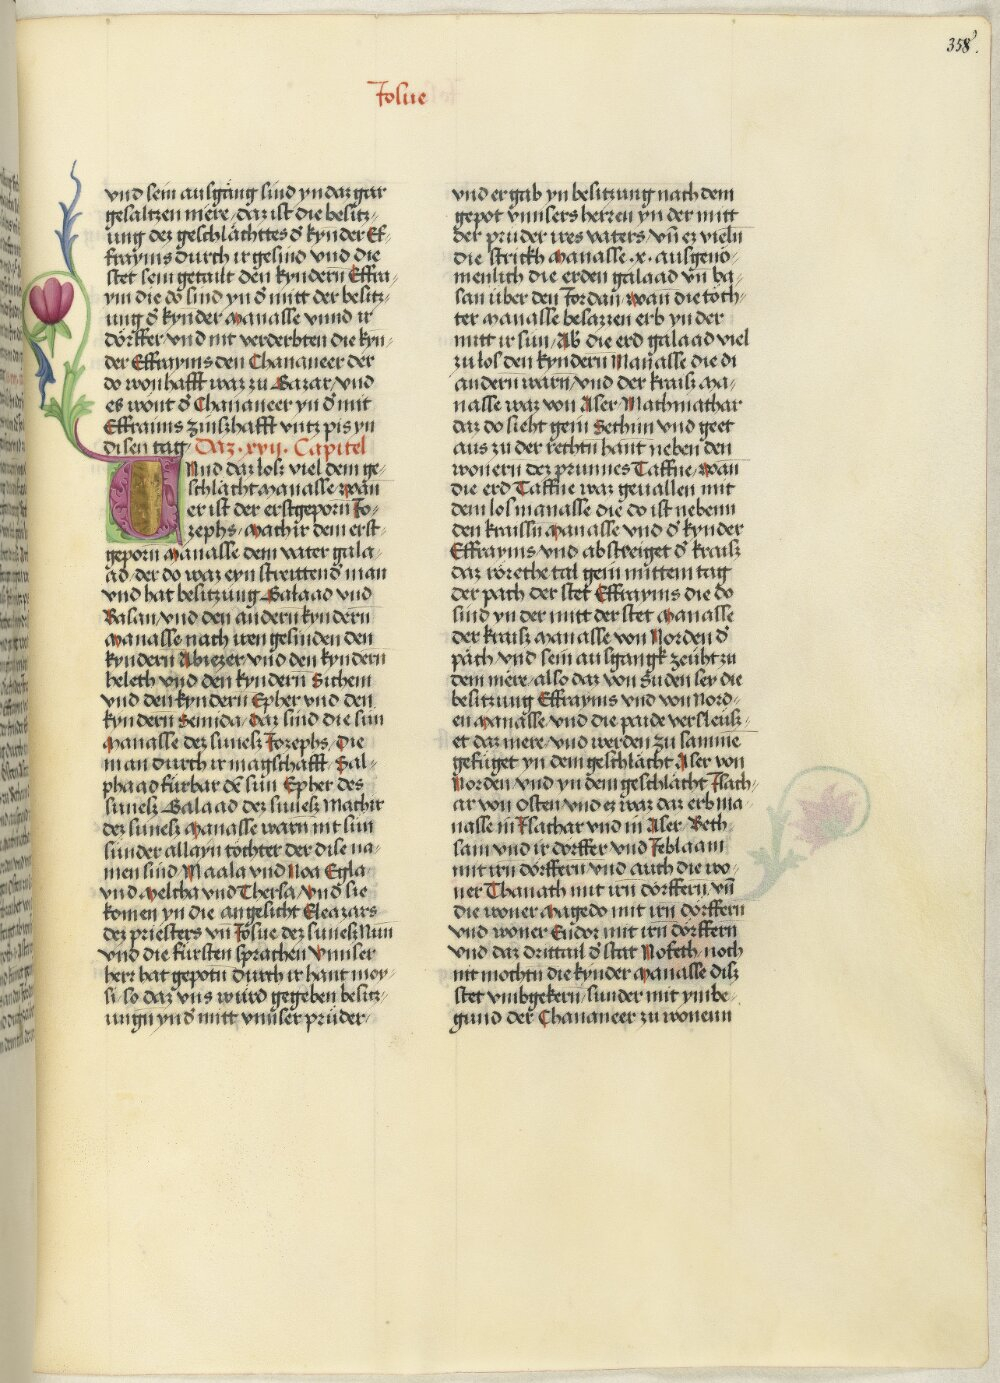 358.
Josue
vnd sein ausgang sind yn daz gar
gesaltzen mere, daz ist die besitz⸗
ung dez geschlächttes d͛ kynder Ef⸗
frayms durch ir gesind vnd die
stet sein getailt den kyndern Effra⸗
ym die do sind yn d͛ mitt der besitz⸗
ung d͛ kynder Manasse vnnd ir
dörffer vnd nit verderbten die kyn⸗
der Effrayms den Chananeer der
do wonhafft waz zu Gazar, vnd
es wont d͛ Chananeer yn d͛ mit
Effraims zinszhafft vntz pis yn
disen tag Daz .xvij. Capitel
Und daz losz viel dem ge⸗
schlächt Manasse wan
er ist der erstgeporn Jo⸗
zephs, Machir dem erst⸗
geporn Manasse dem vater gala⸗
ad, der do waz eyn streittend͛ man
vnd hat besitzung Galaad vnd
Basan, vnd den andern kyndern
Manasse nach iren gesinden den
kyndern Abiezer vnd den kyndern
heleth vnd den kyndern Sichem
vnd den kyndern Epher vnd den
kyndern Semida, Daz sind die sün
Manasse dez sunesz Jozephs, Die
man durch ir magschafft, Sal⸗
phaad fürbar dē sün Epher des
sunesz Galaad dez sunesz Machir
dez sunesz Manasse warn nit sün
sünder allayn töchter der dise na⸗
men sind, Maala vnd Noa Egla
vnd Melcha vnd Thersa, Vnd sie
komen yn die angesicht Eleazars
dez priesters vn̄ Josue dez sunesz Nun
vnd die fürsten sprachen Vnnser
herr hat gepotn durch ir hant moy⸗
si, so daz vns würd gegeben besitz⸗
ungn yn d͛ mitt vnnser prüder,
vnd er gab yn besitzung nach dem
gepot vnnsers herren yn der mitt
der prüder ires vaters, vn̄ ez vieln
die strickh Manasse .x. ausgenō⸗
menlich die erden galaad vn̄ ba⸗
san über den Jordan, wan die töch⸗
ter Manasse besazzen erb yn der
mitt ir sün, Ab die erd galaad viel
zu los den kyndern Manasse die di
andern warn, vnd der kraisz Ma⸗
nasse waz von Aser Machmathar
daz do sieht gein Sechim vnd geet
aus zu der rechtn hant neben den
wonern dez prunnes Taffne, wan
die erd Taffne waz geuallen mit
dem los manasse die do ist nebenn
den kraissn Manasse vnd d͛ kynder
Effrayms, vnd absteiget d͛ kraisz
daz rörethe tal gein mittem tag
der päch der stet Effrayms die do
sind yn der mitt der stet Manasse
der kraisz Manasse von Norden d͛
päch vnd sein ausgangk zeüht zu
dem mere, also daz von Suden sey die
besitzung Effrayms vnd von Nord⸗
en Manasse, vnd die paide versleusz⸗
et daz mere, vnd werden zu samme
gefüget yn dem geschlächt Aser von
Norden, vnd yn dem geschlächt Isach⸗
ar von Osten, vnd ez waz daz erb ma⸗
nasse in Isachar vnd in Aser, Beth⸗
sam vnd ir dörffer vnd Jeblaam
mit irn dörffern vnd auch die wo⸗
ner Thanath mit irn dörffern vn̄
die woner Magedo mit irn dörffern
vnd woner Endor mit irn dörffern
vnd daz drittail d͛ stat Nofeth, noch
nit mochtn die kynder Manasse disz
stet vmbgekern, sunder mit ymbe⸗
gund der Chananeer zu wonenn